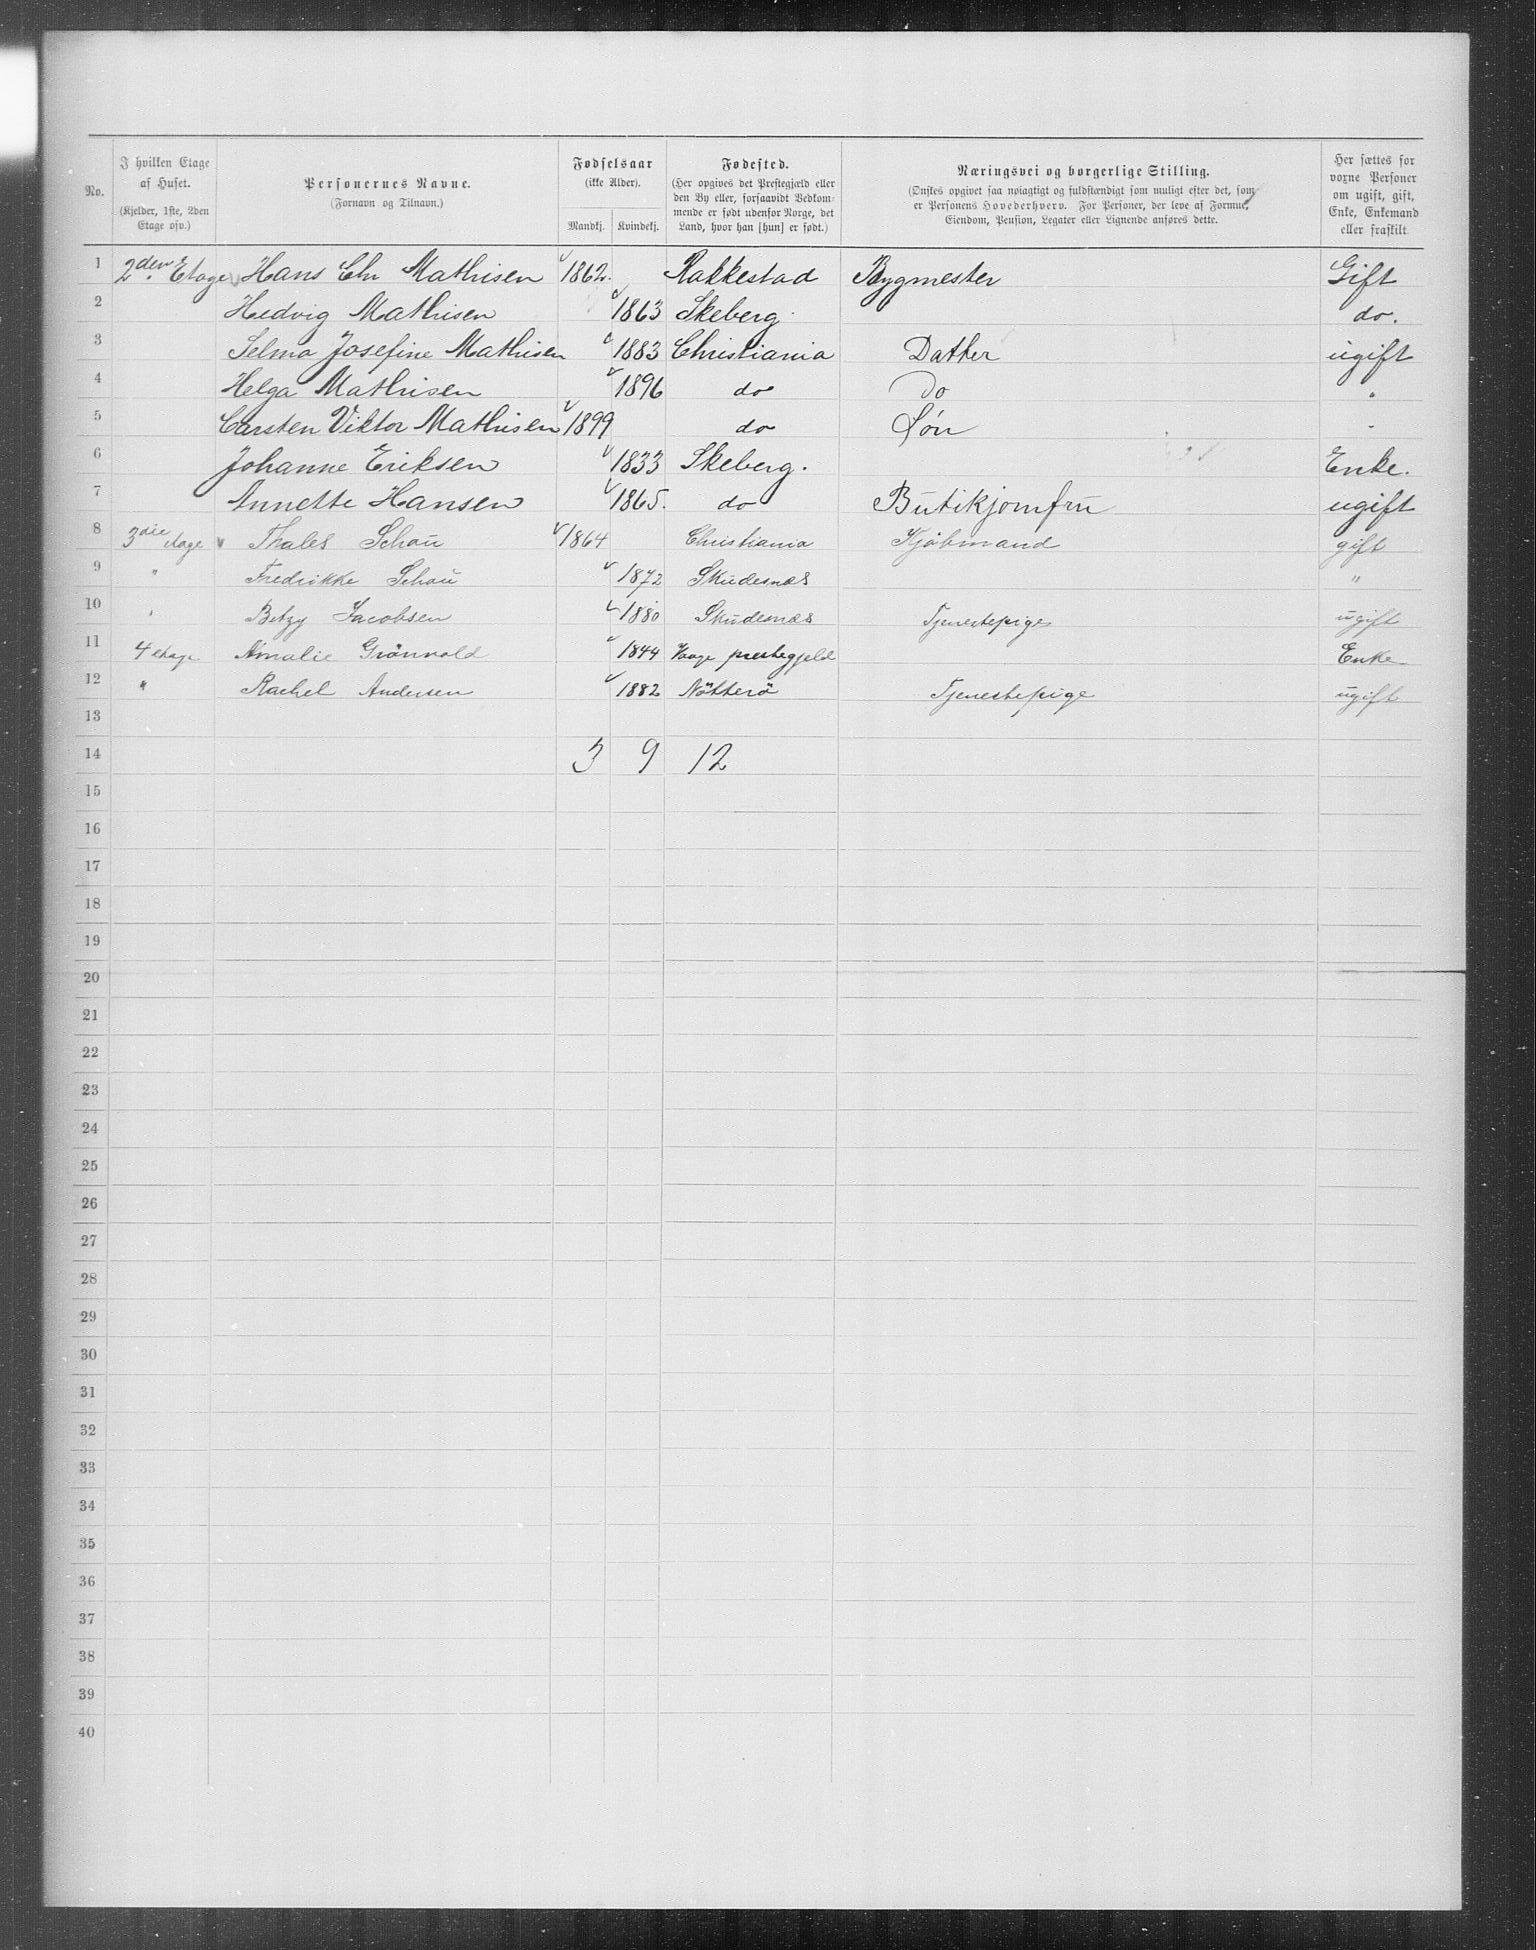 No. | I hvilken Etage af Huset. (Kjelder, 1ste, 2den Etage osv.) | Personernes Navne. (Fornavn og Tilnavn.) | Fødselsaar (ikke Alder). Mandkj. | Kvindekj. | Fødested. (Her opgives det Prestegjæld eller den By eller, forsaavidt Vedkommende er født udenfor Norge, det Land, hvor han [hun] er født.) | Næringsvei og borgerlige Stilling. (Ønskes opgivet saa nøiagtigt og fuldstændigt som muligt efter det, som er Personens Hovederhverv. For Personer, der leve af Formue, Eiendom, Pension, Legater eller Lignende anføres dette. | Her sættes for voxne Personer om ugift, gift, Enke, Enkemand eller fraskilt
1 2den Etage Hans Chr Mathisen 1862. Rakkestad Bygmester Gift
2 Hedvig Mathisen 1863 Skeberg. do.
3 Selma Josefine Mathisen 1883 Christiania Datter ugift
4 Helga Mathisen 1896 do Do "
5 Carsten Viktor Mathisen 1899 do Søn "
6 Johanne Eriksen 1833 Skeberg. Enke.
7 Annette Hansen 1865. do Butikjomfru ugift
8 3die etage Thales Schou 1864 Christiania Kjøbmand gift
9 " Fredrikke Schou 1872 Skudesnæs "
10 " Betzy Jacobsen 1880 Skudesnæs Tjenestepige ugift
11 4 etage Amalie Grönvold 1844 Vaage prestegjeld Enke
12 " Rachel Andersen 1882 Nötterö Tjenestepige ugift
13
14 3 9 12
15
16
17
18
19
20
21
22
23
24
25
26
27
28
29
30
31
32
33
34
35
36
37
38
39
40